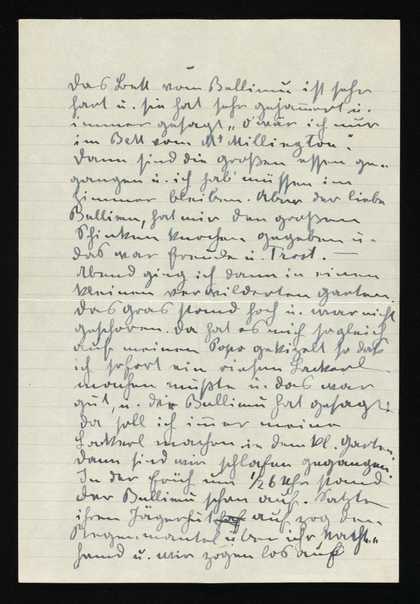 das Bett vom Bullimu ist sehr
hart u. sie hat sehr gejammert u.
immer gesagt „O wär ich nur
im Bett vom Mr Millington".
Dann sind die großen essen ge-
gangen u. ich hab müssen im
Zimmer bleiben. Aber der liebe
Bullimu, hat mir den großen
Schinken knochen gegeben u.
das war Freude u. Trost. —
Abend ging ich dann in einen
kleinen verwilderten Garten.
das Gras stand hoch u. war nicht
geschoren. Da hat es mich sogleich
auf meinen Popo gekizelt so daß
ich sofort ein riesen Lackerl
machen mußte u. das war
gut, u. der Bullimu hat gesagt:
da soll ich immer meine
Lackerl machen in dem kl. Garten.
dann sind wir schlafen gegangen.
In der Früh um 1/2 6 Uhr stand
der Bullimu schon auf. Setzte
ihren Jägerhut auf, zog den
Regenmantel über ihr Nacht-
hemd u. wir zogen los auf